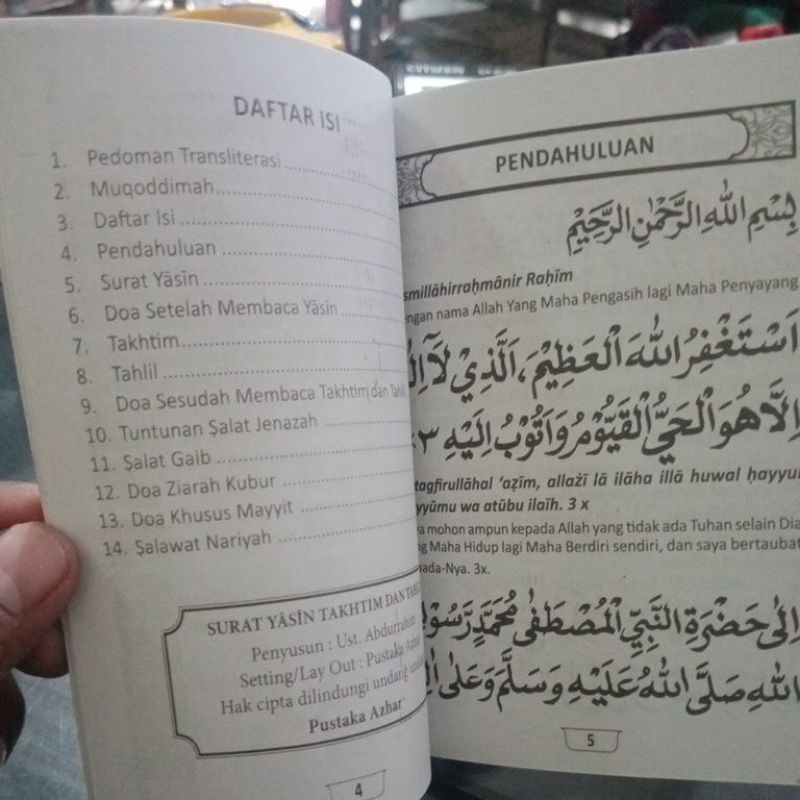 DAFTAR ISI
1. Pedoman Transliterasi
2. Muqoddimah
3. Daftar Isi
4. Pendahuluan
5. Surat Yāsîn
6. Doa Setelah Membaca Yāsîn
7. Takhtim
8. Tahlil
9. Doa Sesudah Membaca Takhtim dan Tahlil
10. Tuntunan Ṣalat Jenazah
11. Ṣalat Gaib
12. Doa Ziarah Kubur
13. Doa Khusus Mayyit
14. Ṣalawat Nariyah
SURAT YĀSÎN TAKHTIM DAN
Penyusun : Ust. Abdurrahim
Setting/Lay Out : Pustaka Azhar
Hak cipta dilindungi undang
Pustaka Azhar
4
PENDAHULUAN
بِسْمِ اللهِ الرَّحْمٰنِ الرَّحِيْمِ
smillāhirraḥmānir Raḥîm
ngan nama Allah Yang Maha Pengasih lagi Maha Penyayang
اَسْتَغْفِرُ اللهَ الْعَظِيْمَ، اَلَّذِيْ لَآ
اِلَّا هُوَ الْحَيُّ الْقَيُّوْمُ وَاَتُوْبُ اِلَيْهِ ٣×
tagfirullāhal ‘aẓîm, allażî lā ilāha illā huwal ḥayyul
yyūmu wa atūbu ilaîh. 3 x
a mohon ampun kepada Allah yang tidak ada Tuhan selain Dia
g Maha Hidup lagi Maha Berdiri sendiri, dan saya bertaubat
pada-Nya. 3x.
اِلٰى حَضْرَةِ النَّبِيِّ الْمُصْطَفٰى مُحَمَّدٍ رَّسُوْلِ
اللهِ صَلَّى اللهُ عَلَيْهِ وَسَلَّمَ وَعَلٰى
5